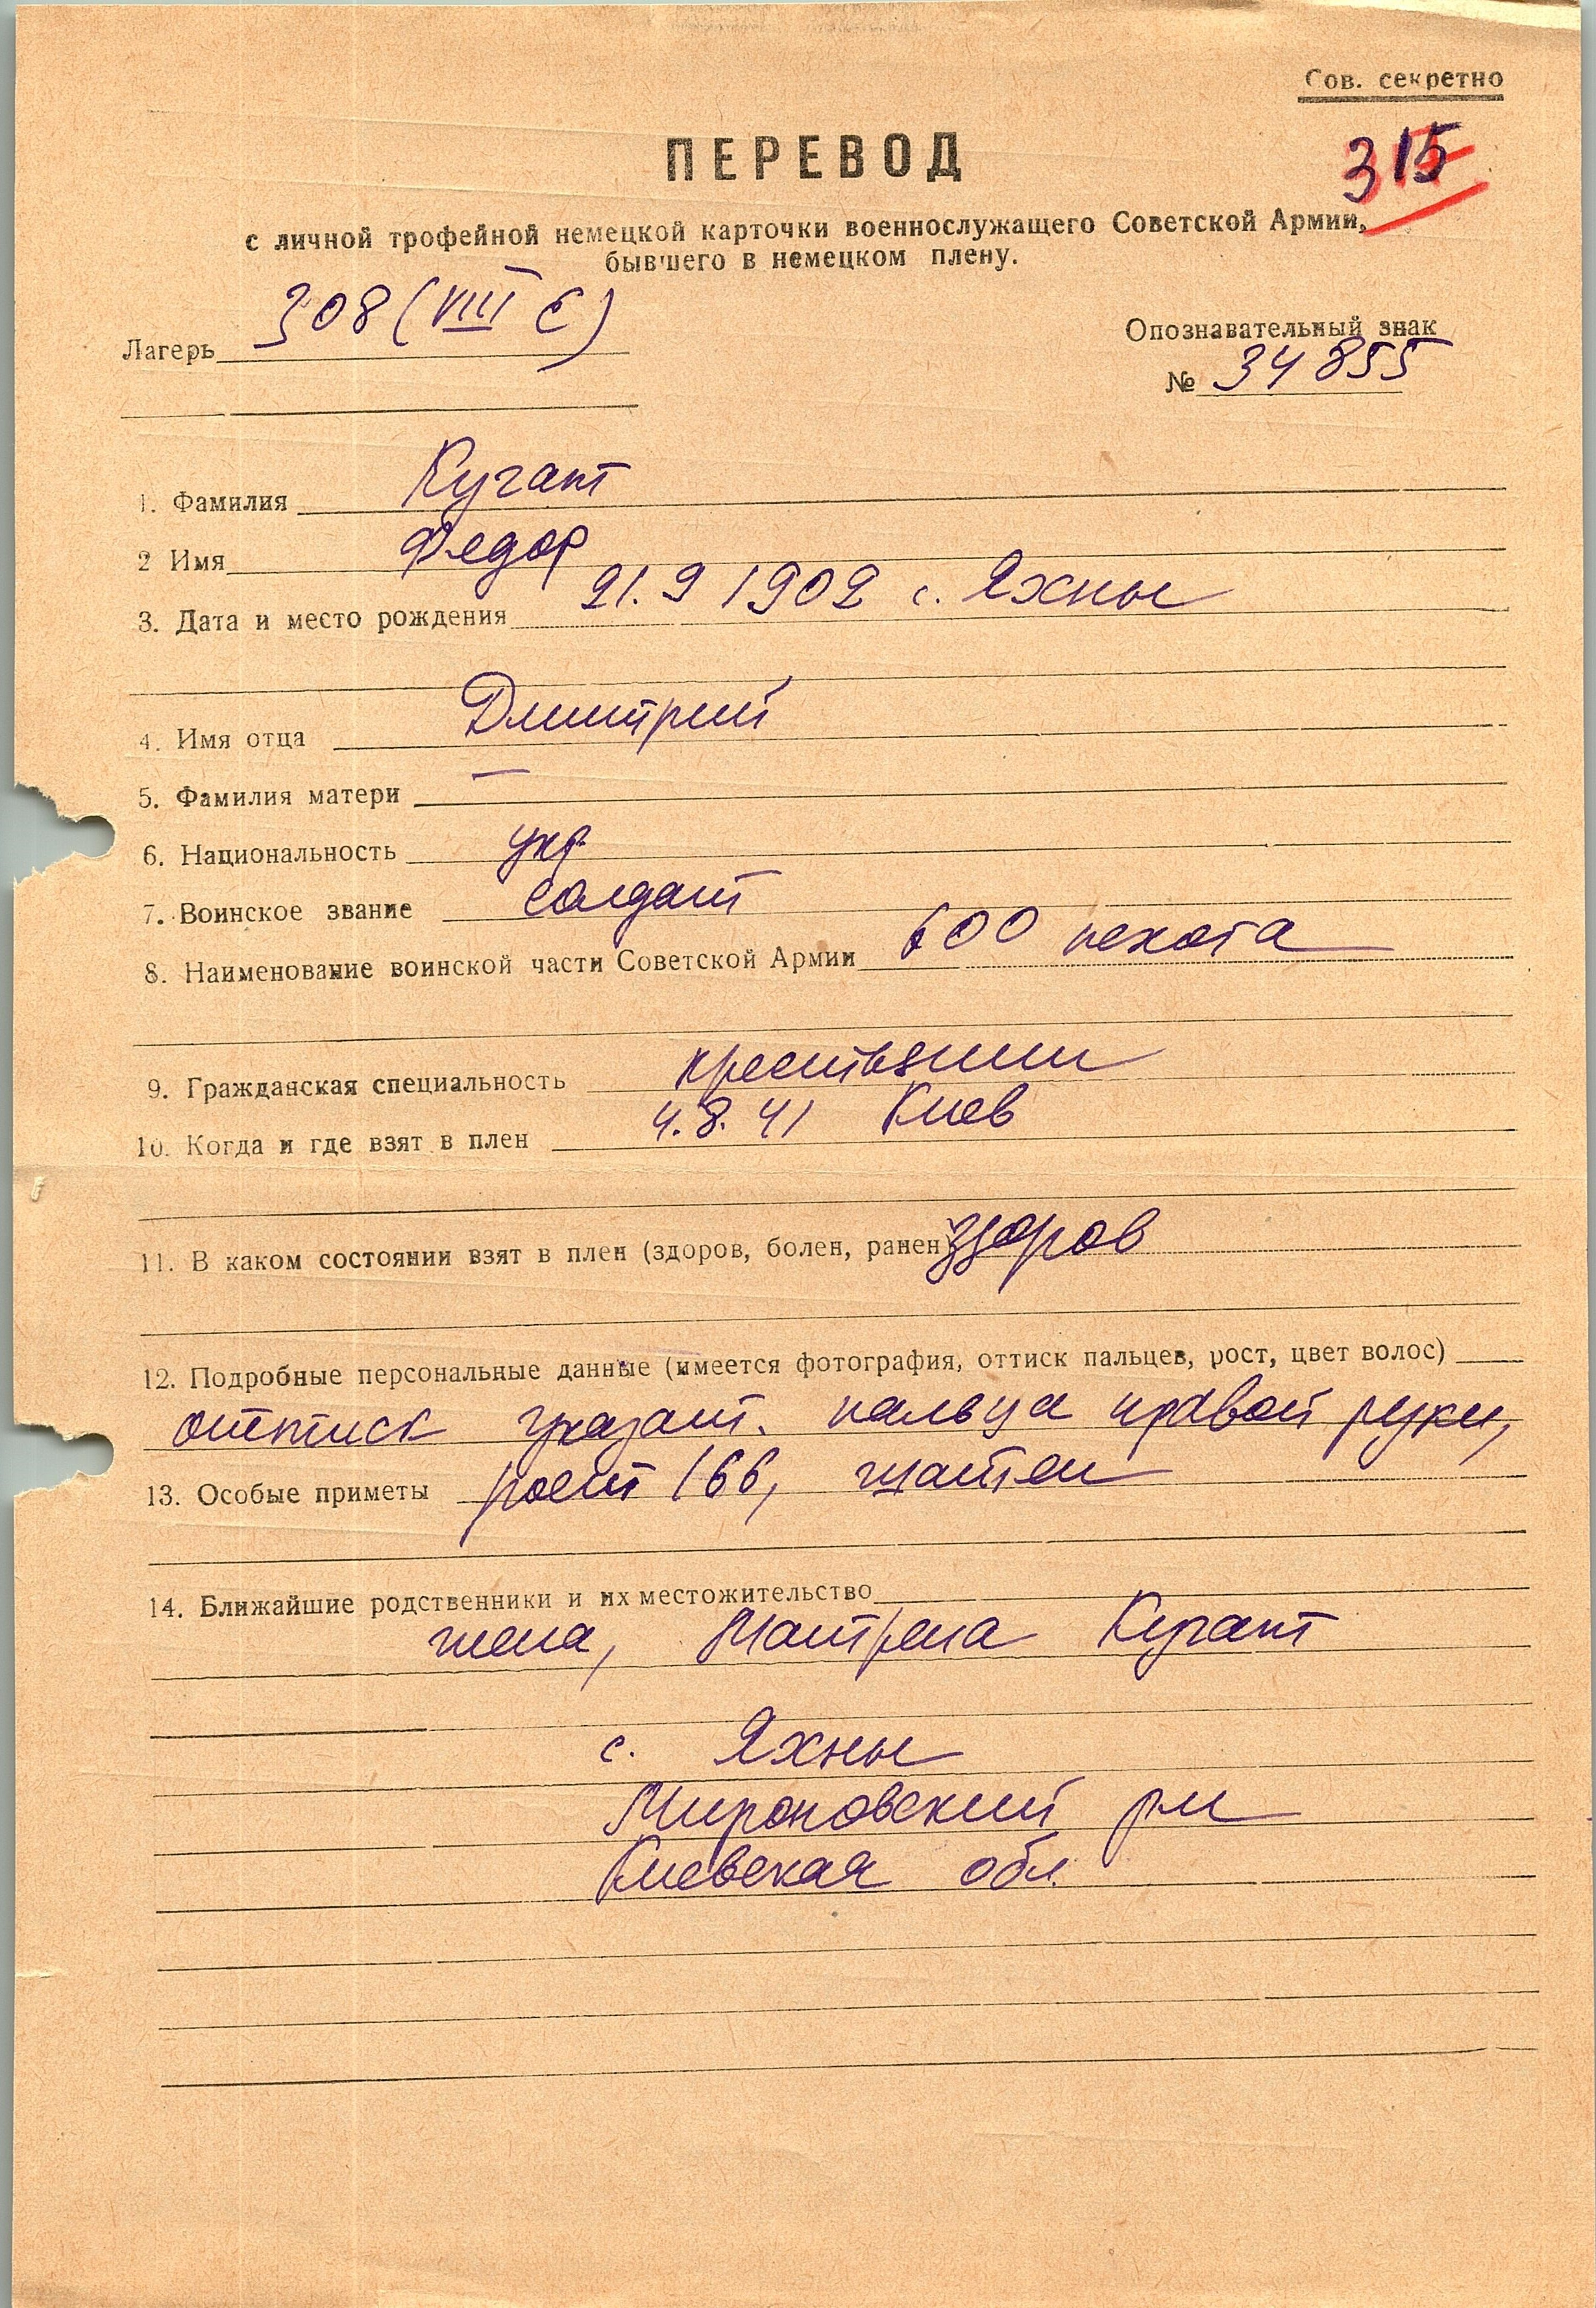 Сов. секретно
315
ПЕРЕВОД
с личной трофейной немецкой карточки военнослужащего Советской Армии,
бывшего в немецком плену.
Лагерь 308 (VIII Е)
Опознавательный знак
№ 34855
1. Фамилия Кугант
2 Имя Федор
3. Дата и место рождения 21.9 1902 с. Яхны
4. Имя отца Дмитрий
5. Фамилия матери —
6. Национальность укр.
7. Воинское звание солдат
8. Наименование воинской части Советской Армии 600 пехота
9. Гражданская специальность крестьянин
10. Когда и где взят в плен 4.8.41 Киев
11. В каком состоянии взят в плен (здоров, болен, ранен) здоров
12. Подробные персональные данные (имеется фотография, оттиск пальцев, рост, цвет волос)
оттиск указат. пальца правой руки,
13. Особые приметы рост 166, шатен
14. Ближайшие родственники и их местожительство
жена, Матрена Кугант
с. Яхны
Мироновский р-н
Киевская обл.